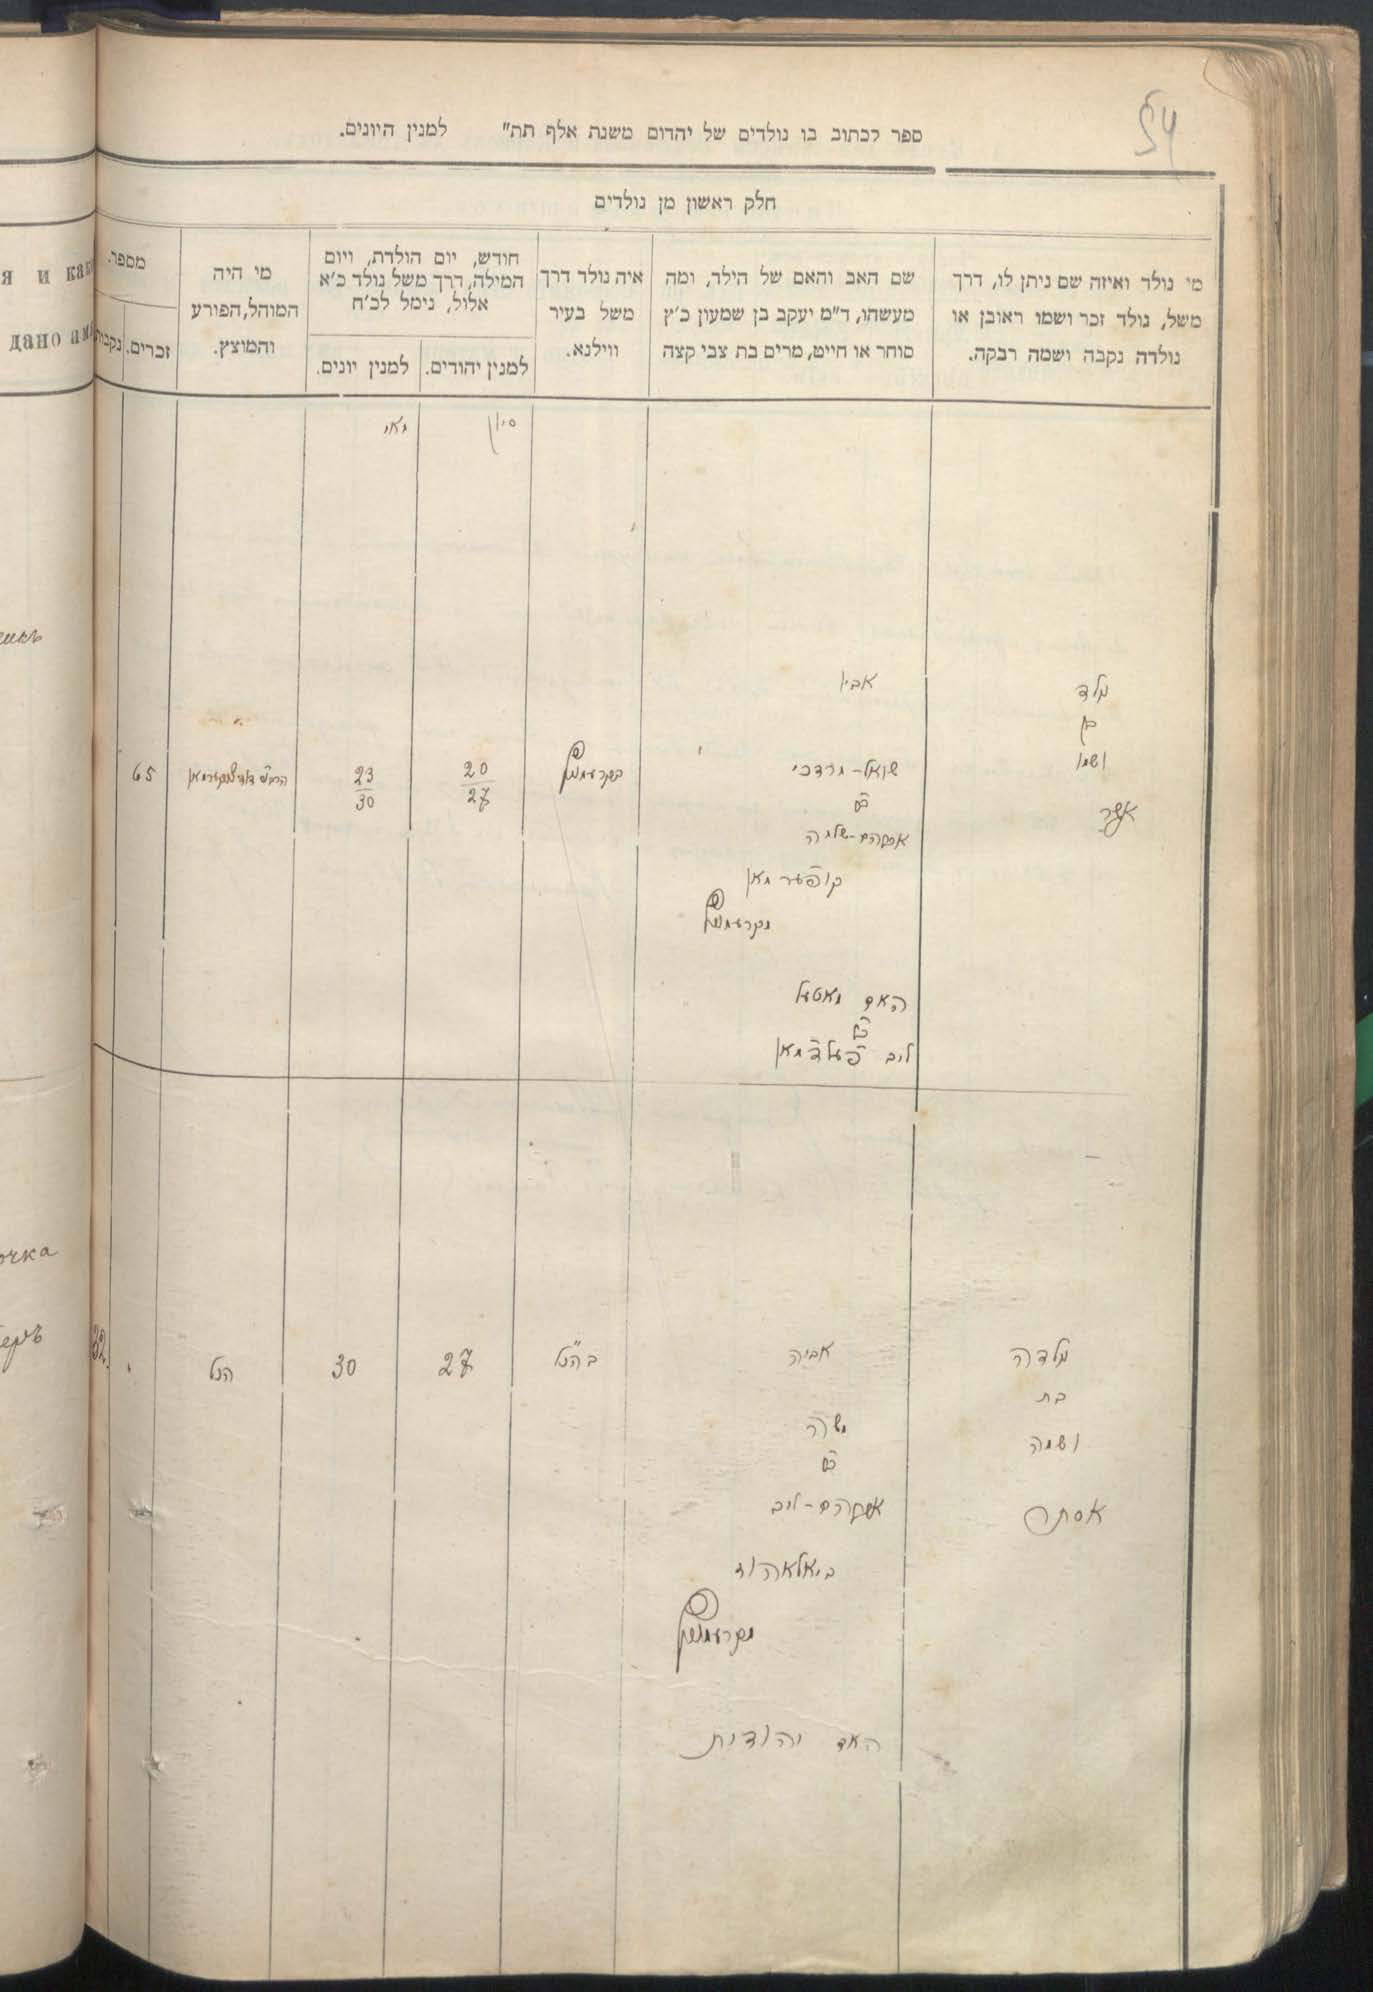 54
ספר לכתוב בו נולדים של יהדום משנת אלף תת" למנין היונים.
חלק ראשון מן נולדים
מי נולד ואיזה שם ניתן לו, דרך
משל, נולד זכר ושמו ראובן או
נולדה נקבה ושמה רבקה.
שם האב והאם של הילד, ומה
מעשהו, ד"מ יעקב בן שמעון כ"ץ
סוחר או חייט, מרים בת צבי קצה
איה נולד דרך
משל בעיר
ווילנא.
חודש, יום הולדת, ויום
המילה, דרך משל נולד כ"א
אלול, נימל לכ"ח
למנין יהודים.
למנין יונים.
מי היה
המוהל, הפורע
והמוצץ.
מספר.
זכרים.
נקבות
я и как
дано им
סיון
מאי
נולד
בן
ושמו
אשר
אביו
שמואל-מרדכי
ב"ר
אברהם-שלמה
קופערמאן
האם
ליב פעלדמאן
20
27
23
30
65
נולדה
בת
ושמה
אסתר
אביה
משה
ב"ר
אברהם-ליב
האם יהודית
בהנ"ל
27
30
הנ"ל
32.
очка